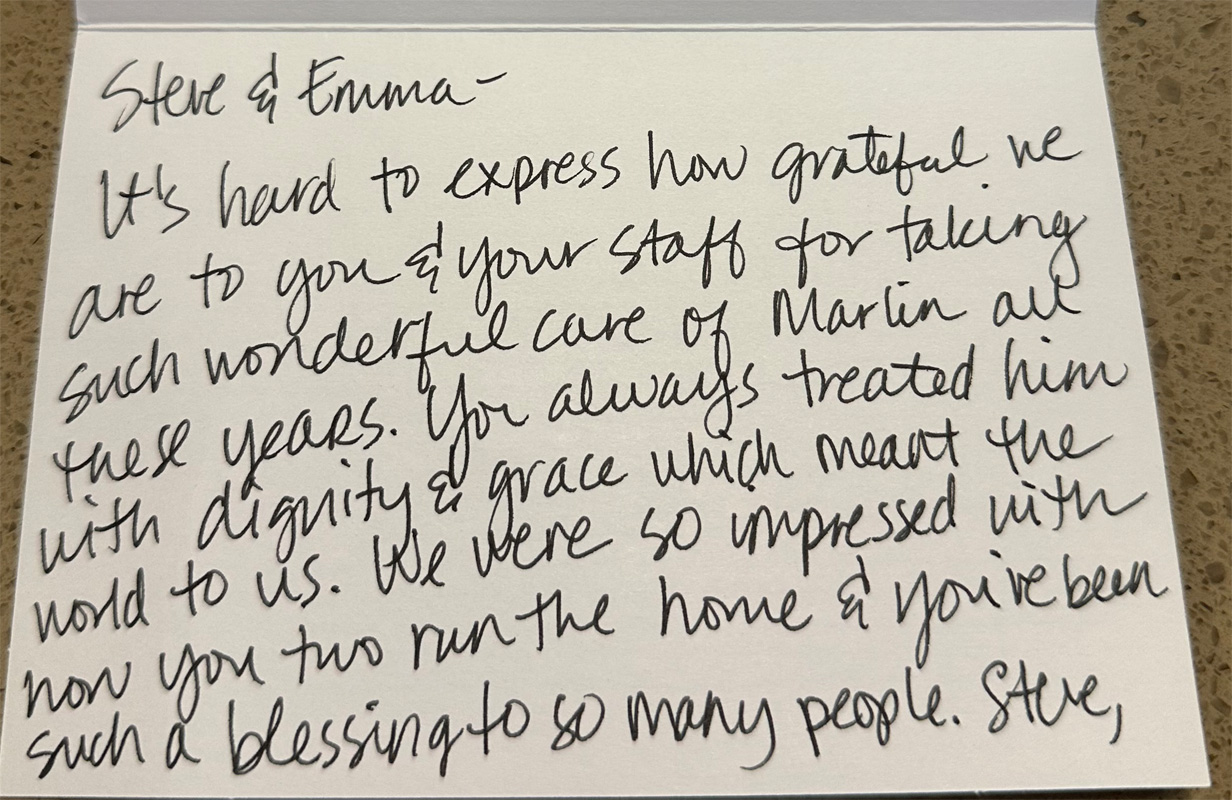 Steve & Emma-
It's hard to express how grateful we
are to you & your staff for taking
such wonderful care of Marlin all
these years. You always treated him
with dignity & grace which meant the
world to us. We were so impressed with
how you two run the home & you've been
such a blessing to so many people. Steve,